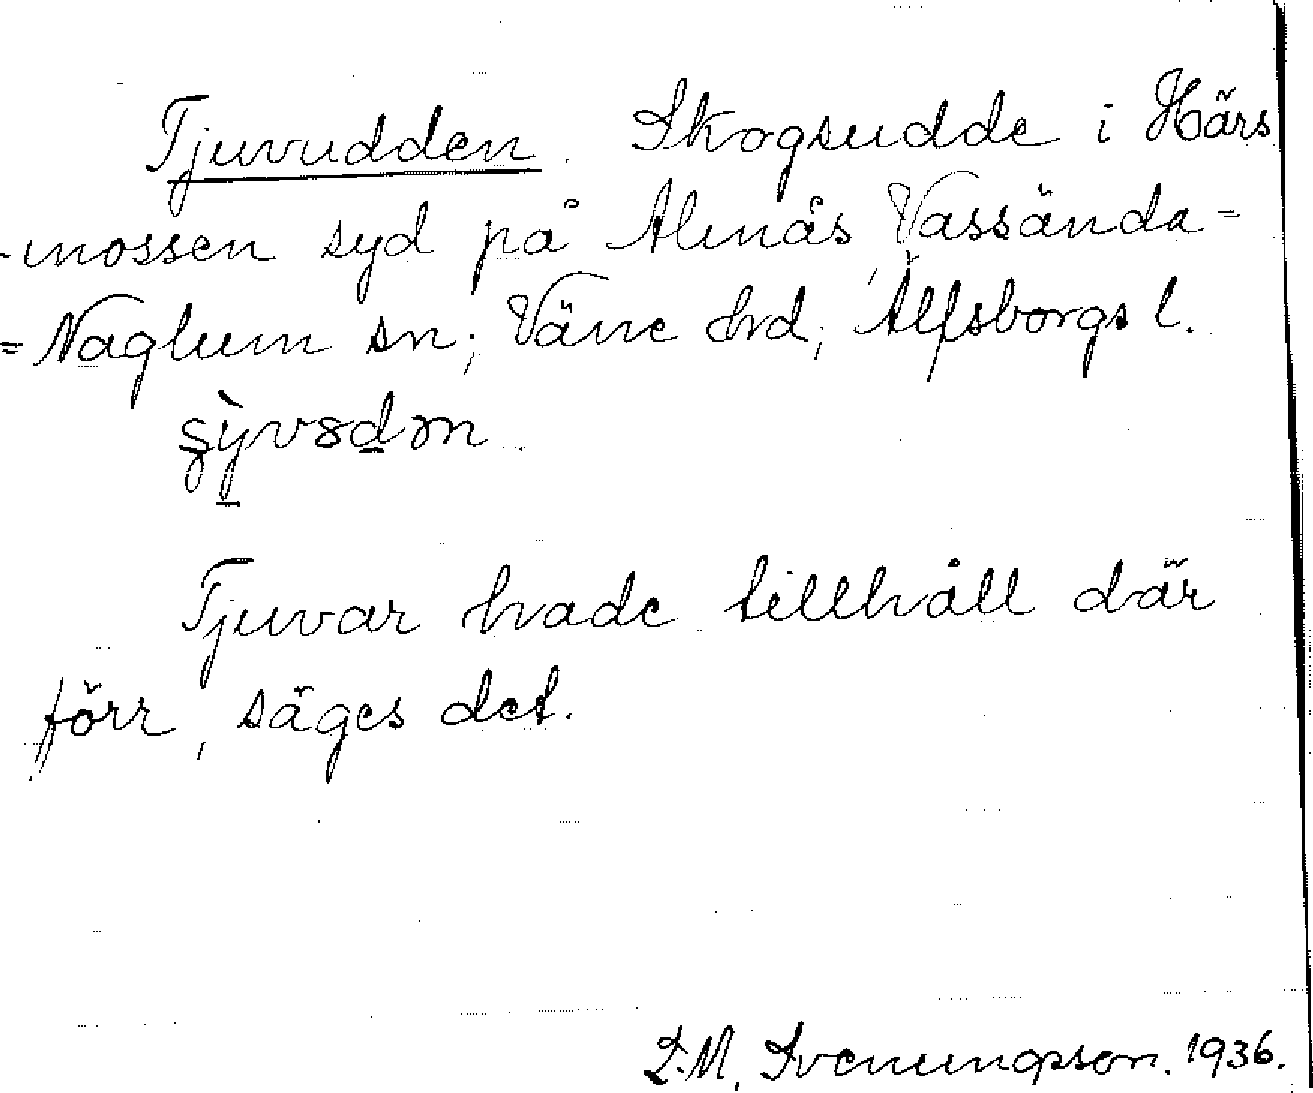 Tjuvudden. Skogsudde i Härs
-mossen syd på Almås, Vassända-
=Naglum sn; Väne hd, Älfsborgs l.
Tjuvar hade tillhåll där
förr, säges det.
S.M. Svenungsson. 1936.